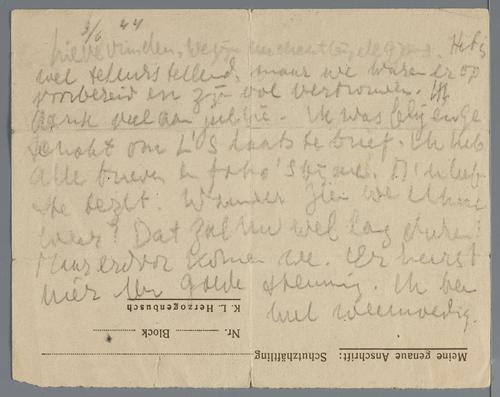 3/6 44
Lieve vrienden, we zijn
wel teleurstellend, maar we waren er op
voorbereid en zijn vol vertrouwen. Ik
denk veel aan jullie. Ik was blij
om L's laatste brief. Ik heb
alle brieven en foto's bij me. M'n
bezit. Wanneer zien we elkaar
weer? Dat zal nu wel lang duren!
Maar erdoor komen we. Er heerst
hier een goede stemming. Ik ben
heel weemoedig.
K. L. Herzogenbusch
Nr. Block
Meine genaue Anschrift: Schutzhäftling